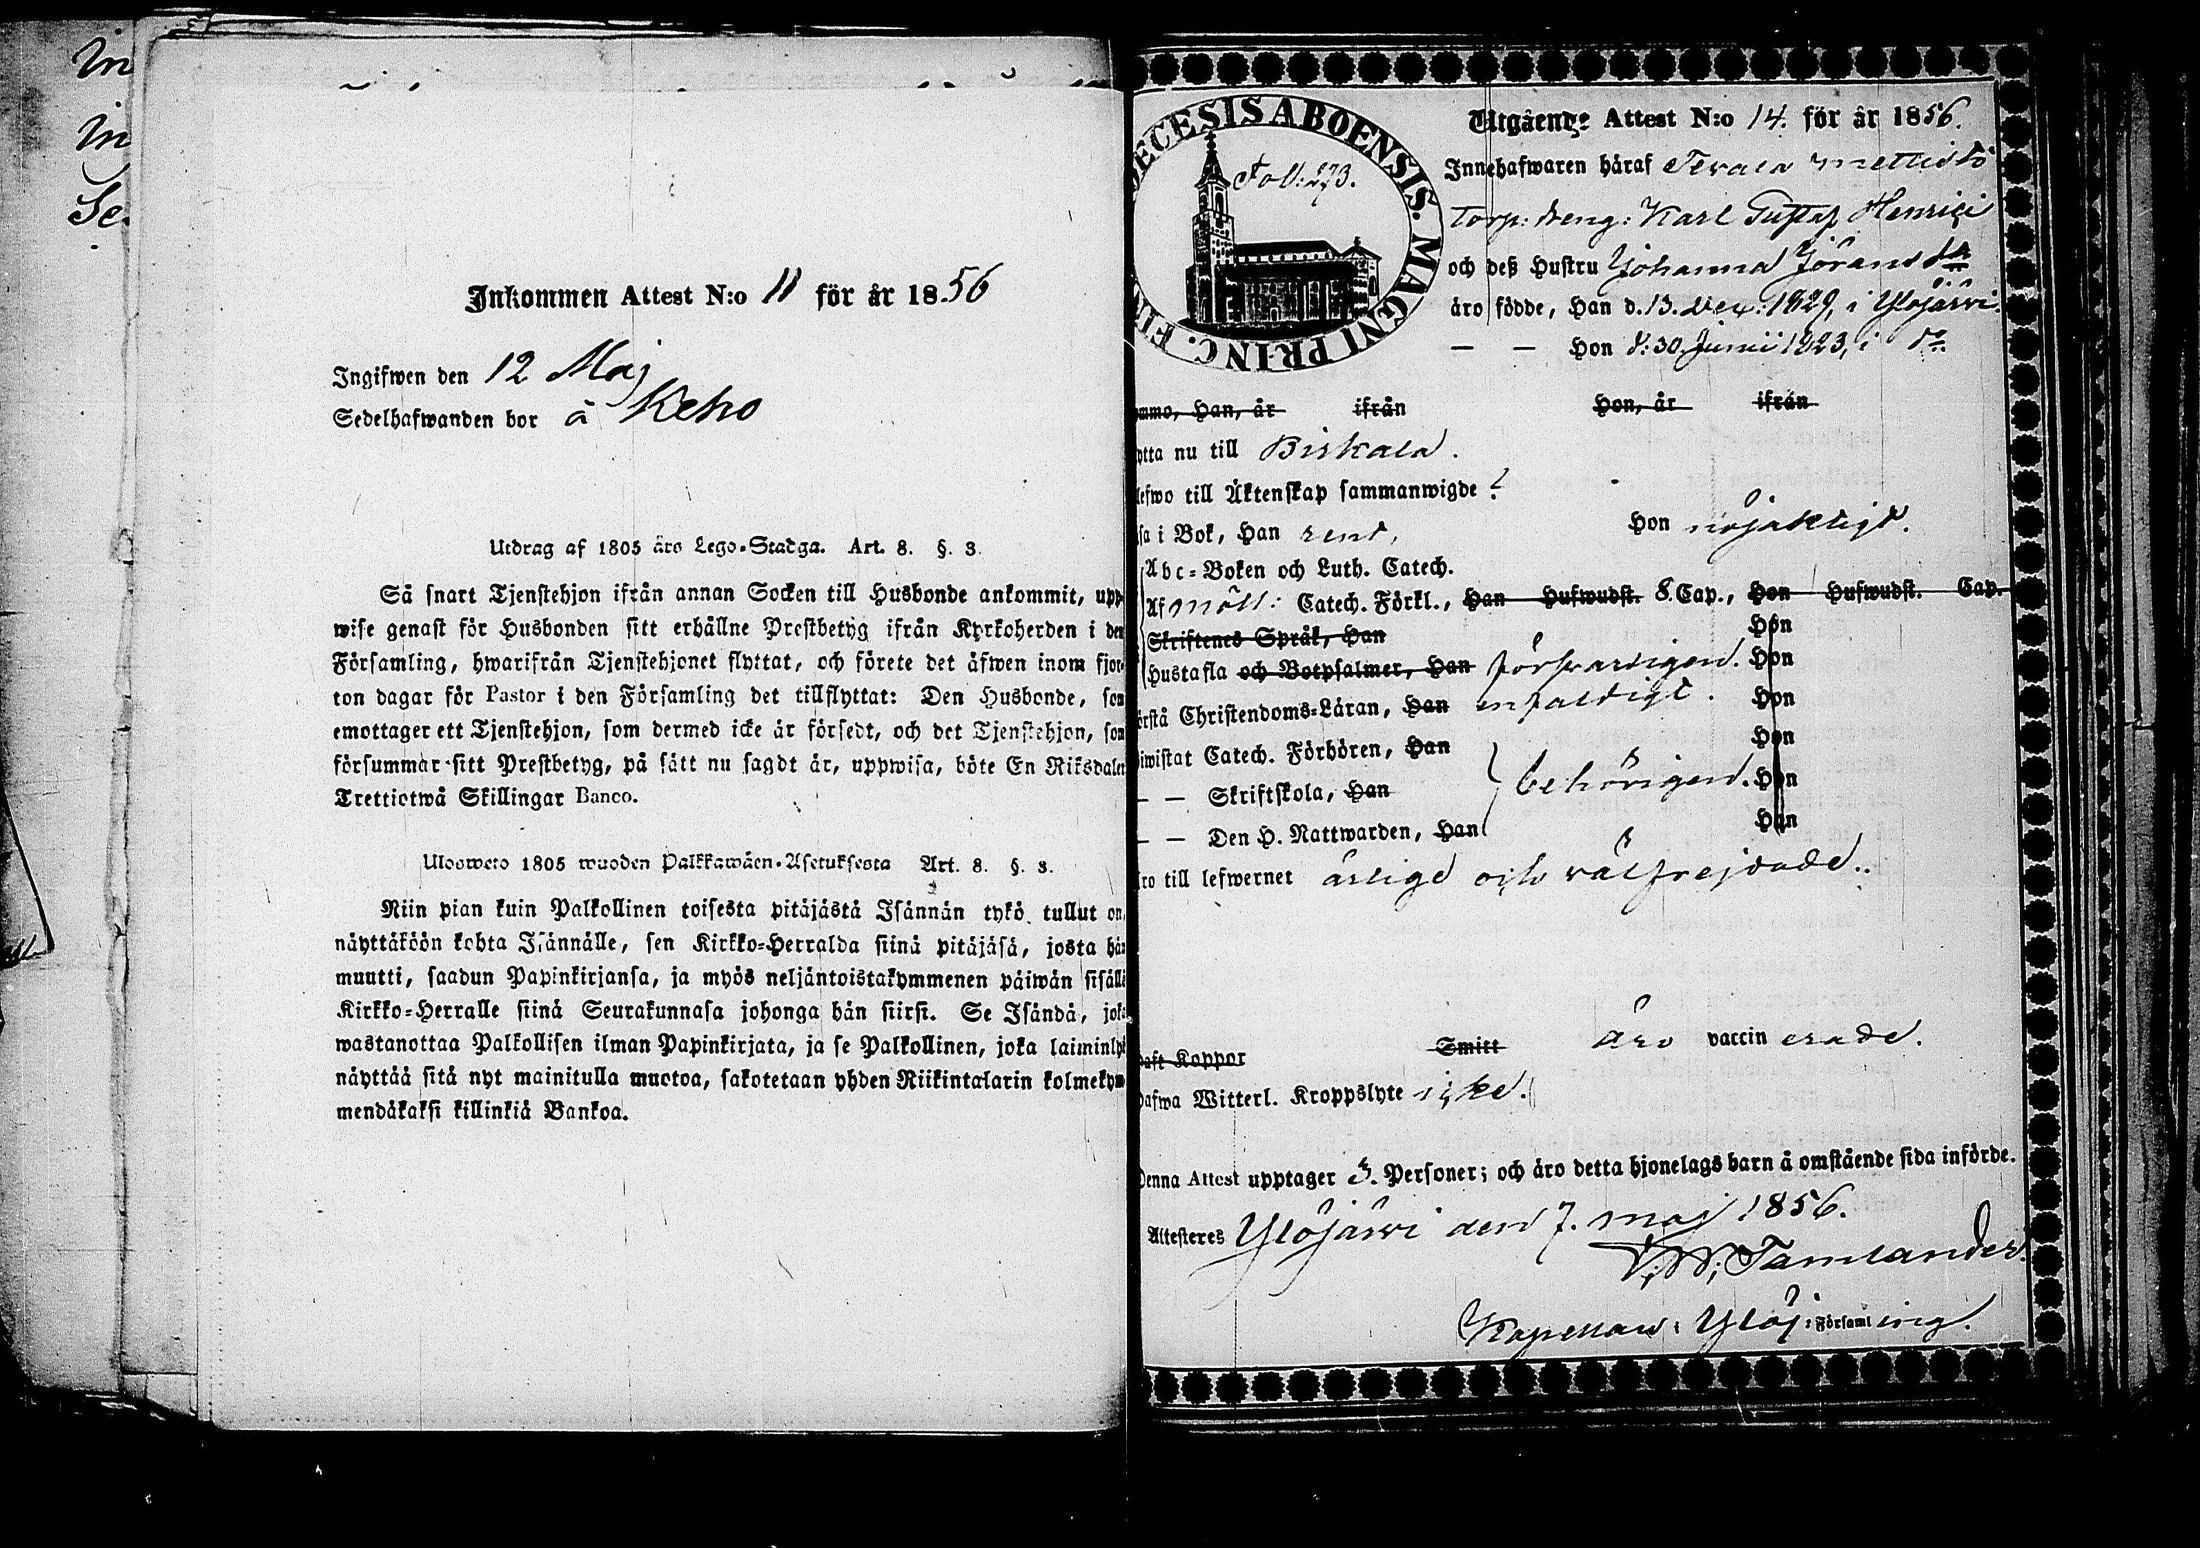 In
In
Se
Inkommen Attest N:o 11 för år 1856
Ingifwen den 12 Maj
Sedelhafwanden bor å Keho
Utdrag af 1805 års Lego-Stadga. Art. 8. §. 3.
Så snart Tjenstehjon ifrån annan Socken till Husbonde ankommit, upp-
wise genast för Husbonden sitt erhållne Prestbetyg ifrån Kyrkoherden i den
Församling, hwarifrån Tjenstehjonet flyttat, och förete det äfwen inom fjor-
ton dagar för Pastor i den Församling det tillflyttat: Den Husbonde, som
emottager ett Tjenstehjon, som dermed icke är försedt, och det Tjenstehjon, som
försummar sitt Prestbetyg, på sätt nu sagdt är, uppwisa, böte En Riksdaler
Trettiotwå Skillingar Banco.
Ulosweto 1805 wuoden Palkkawäen-Asetuksesta Art. 8. §. 3.
Niin pian kuin Palkollinen toisesta pitäjästä Isännän tykö tullut on,
näyttäköön kohta Isännälle, sen Kirkko-Herralda siinä pitäjäsä, josta hän
muutti, saadun Papinkirjansa, ja myös neljäntoistakymmenen päiwän sisällä
Kirkko-Herralle siinä Seurakunnasa johonga hän siirsi. Se Isändä, joka
wastanottaa Palkollisen ilman Papinkirjata, ja se Palkollinen, joka laiminlyö
näyttää sitä nyt mainitulla muotoa, sakotetaan yhden Riikintalarin kolmekym-
mendäkaksi killinkiä Bankoa.
ECESIS ABOENSIS. MAGNI PRINC. FIN
Foll: 273.
Utgående Attest N:o 14. för år 1856.
Innehafwaren häraf Terala mettistö
Torp: dreng: Karl Gustaf Henrici
och deß Hustru Johanna Jörans dr
äro födde, Han d. 13. Dec: 1829, i Ylöjärvi.
— — Hon d: 30. Junii 1823, i do
mmo, Han, år ifrån Hon, år ifrån
ytta nu till Birkala.
lefwo till Äktenskap sammanwigde ?
sa i Bok, Han rent, Hon nöjaktigt.
Abc-Boken och Luth. Catech.
Af möll: Catech. Förkl., Han Hufwudst. 8. Cap., Hon Hufwudst. Cap.
Skriftenes Språk, Han Hon
Hustafla och Botpsalmer, Han försvarligen. Hon
örstå Christendoms-Läran, Han enfaldigt. Hon
iwistat Catech. Förhören, Han Hon
— — Skriftskola, Han behörigen. Hon
— — Den H. Nattwarden, Han Han
ro till lefwernet ärlige och välfrejdade.
aft Koppor Smitt äro vaccin erade.
afwa Witterl. Kroppslyte icke.
Denna Attest upptager 3. Personer; och äro detta hjonelags barn å omstående sida införde.
Attesteres Ylöjärvi den 7. maj 1856.
Tamlander.
Kapellan i Ylöj: Församl ing.